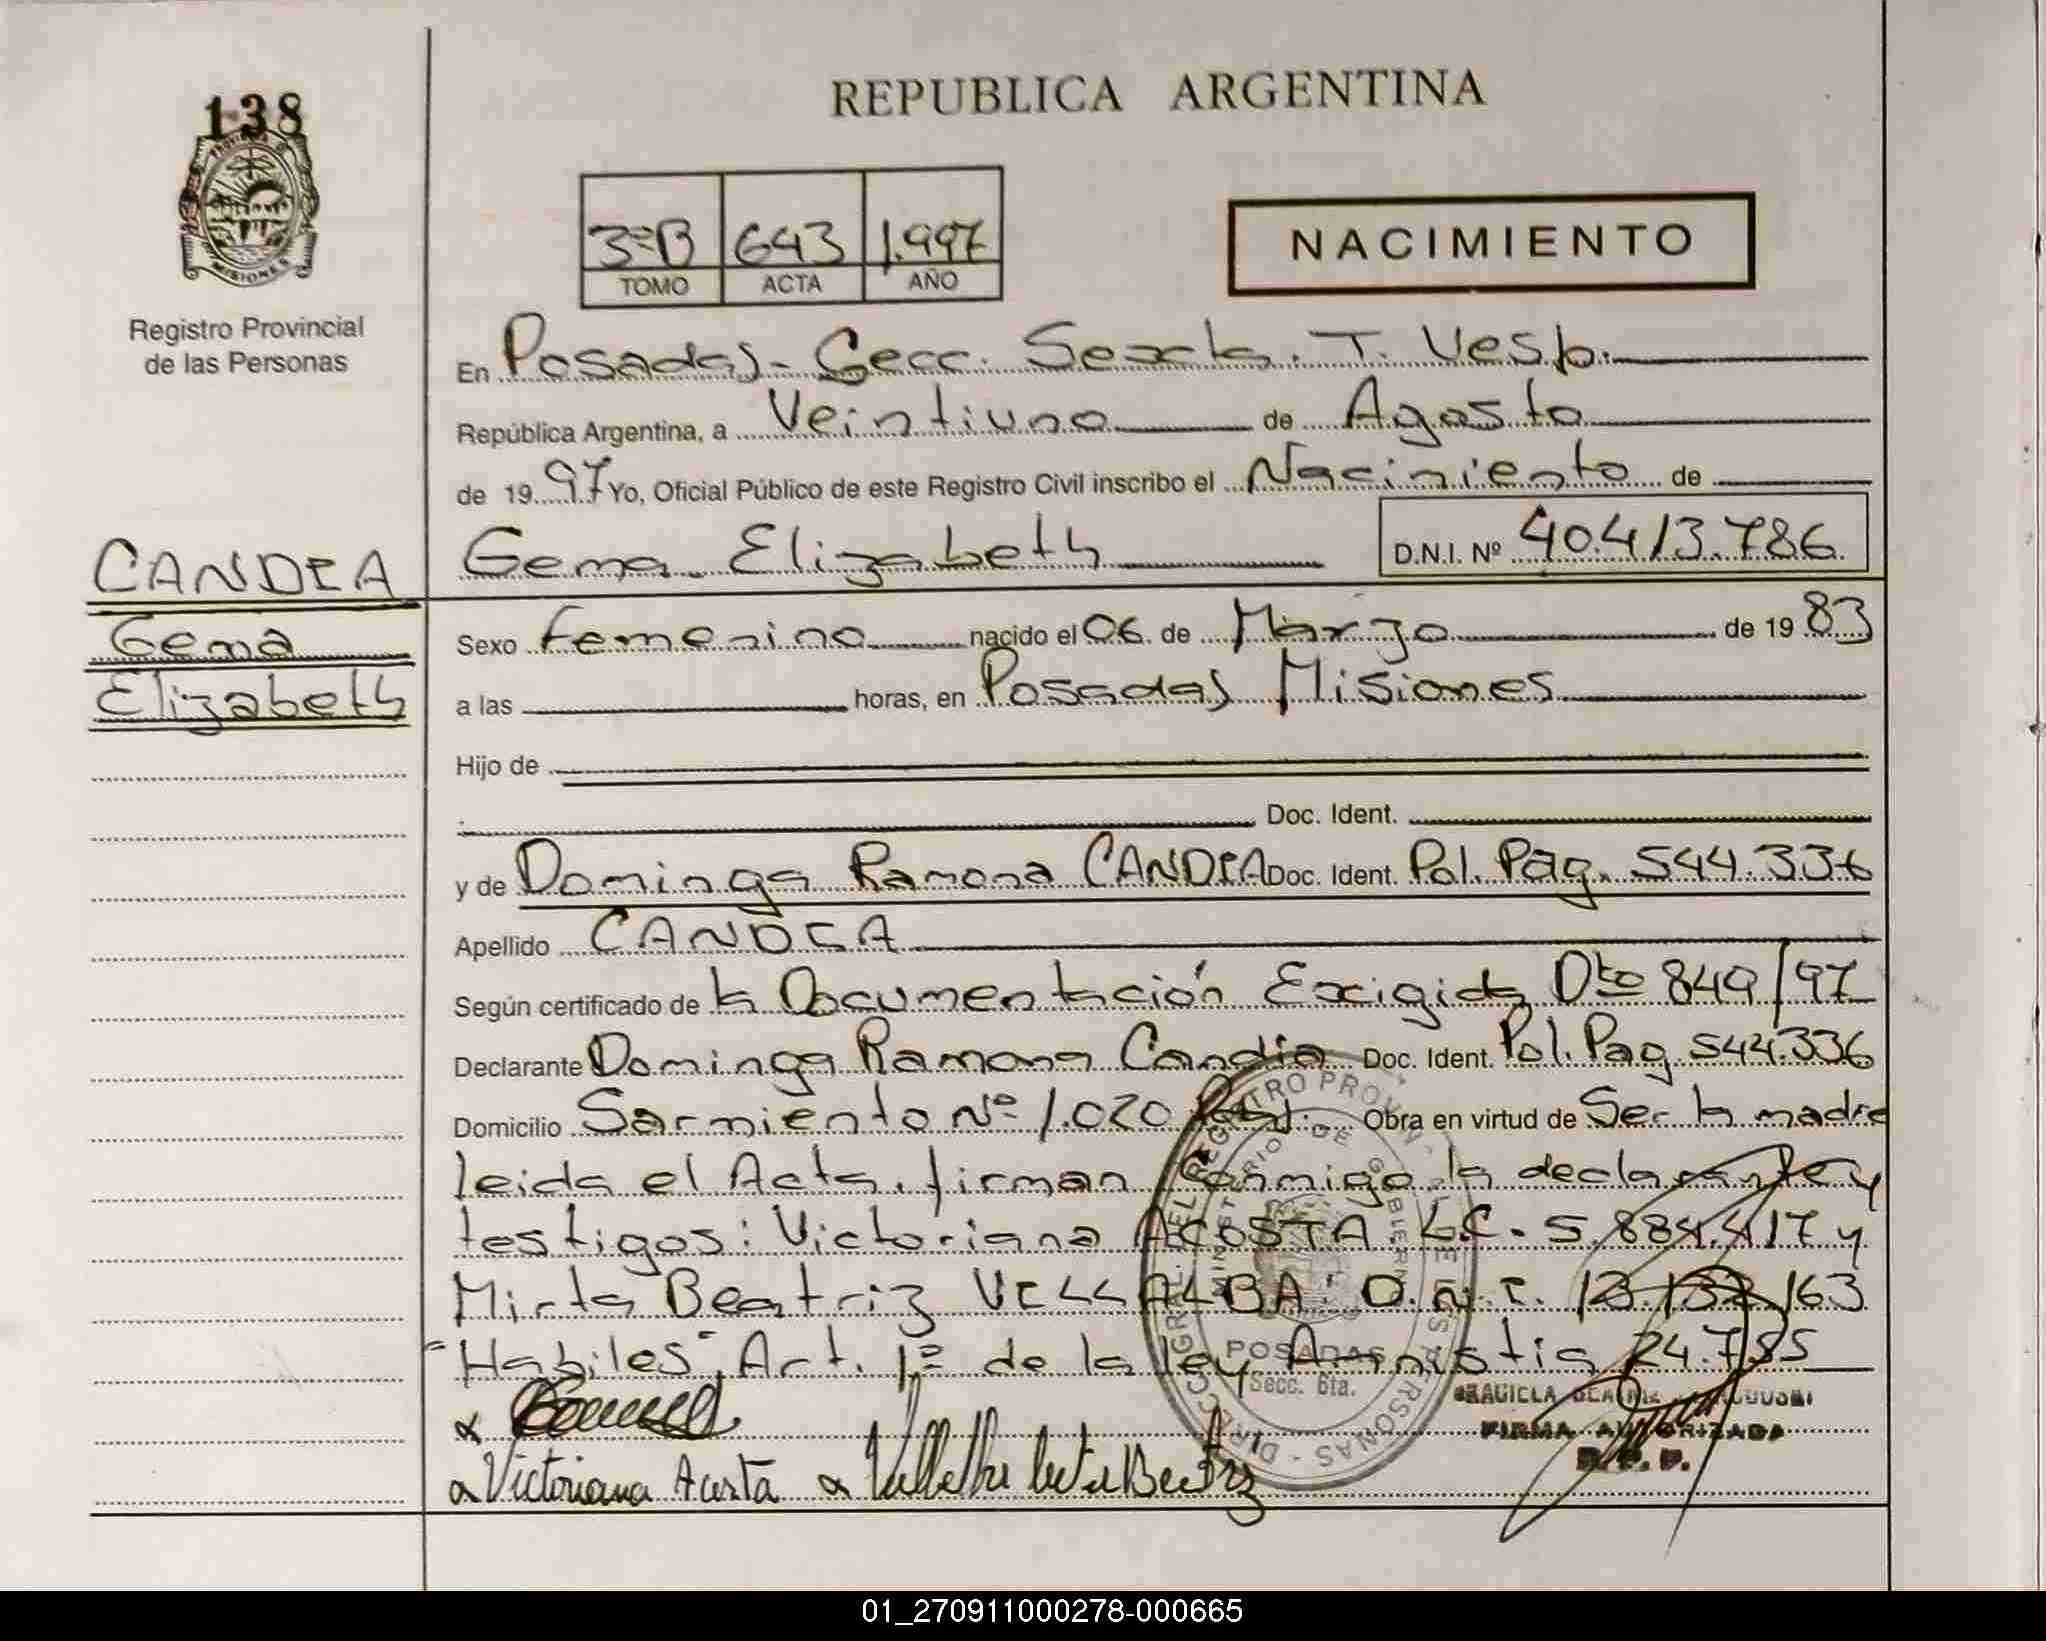 138
PROVINCIA DE
MISIONES
Registro Provincial
de las Personas
REPUBLICA ARGENTINA
3ºB 643 1.997
TOMO ACTA AÑO
NACIMIENTO
En Posadas - Secc. Sexta. T. Vesp.
República Argentina, a Veintiuno de Agosto
de 1997 Yo, Oficial Público de este Registro Civil inscribo el Nacimiento de
Gema Elizabeth D.N.I. Nº 40.413.786
CANDIA
Gema
Elizabeth
Sexo Femenino nacido el 06 de Marzo de 1983
a las horas, en Posadas Misiones
Hijo de
Doc. Ident.
y de Dominga Ramona CANDIA Doc. Ident. Pol. Pag. 544.336
Apellido CANDIA
Según certificado de la Documentación Exigida Dto 849/97
Declarante Dominga Ramona Candia Doc. Ident. Pol. Pag. 544.336
Domicilio Sarmiento Nº 1.020 Obra en virtud de Ser la madre
leida el Acta, firman conmigo la declarante y
testigos: Victoriana ACOSTA L.C. 5.884.417 y
Mirta Beatriz VILLALBA D.N.I. 163
"Habiles" Art. 1º de la ley Amnistia 24.755
POSADAS
Secc. 6ta.
FIRMA AUTORIZADA
R.P.P.
Victoriana Acosta
01_270911000278-000665